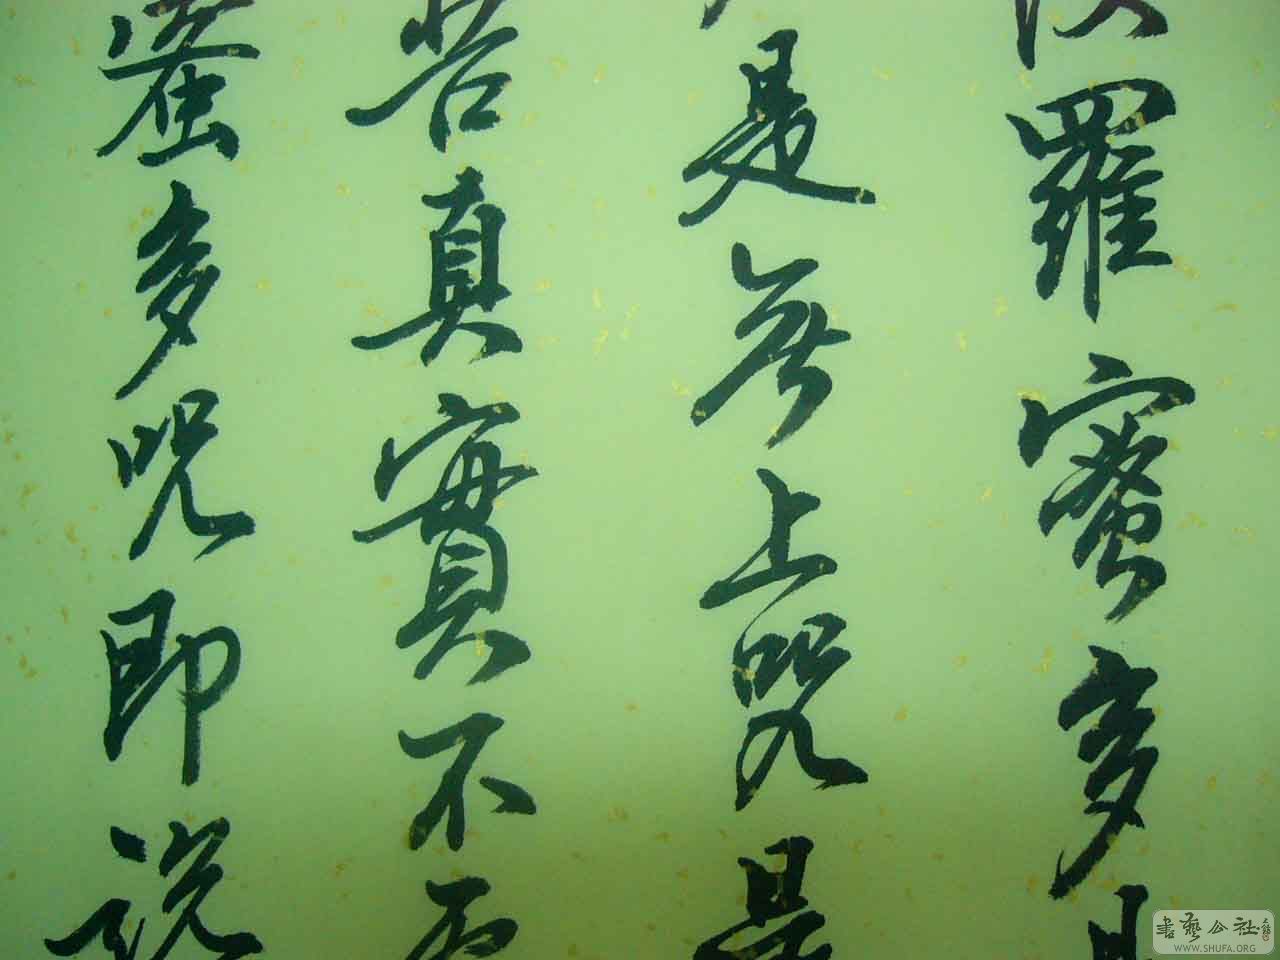 波羅蜜多是
是無上咒是
苦真實不虛
蜜多咒即説
書藝公社
WWW.SHUFA.ORG